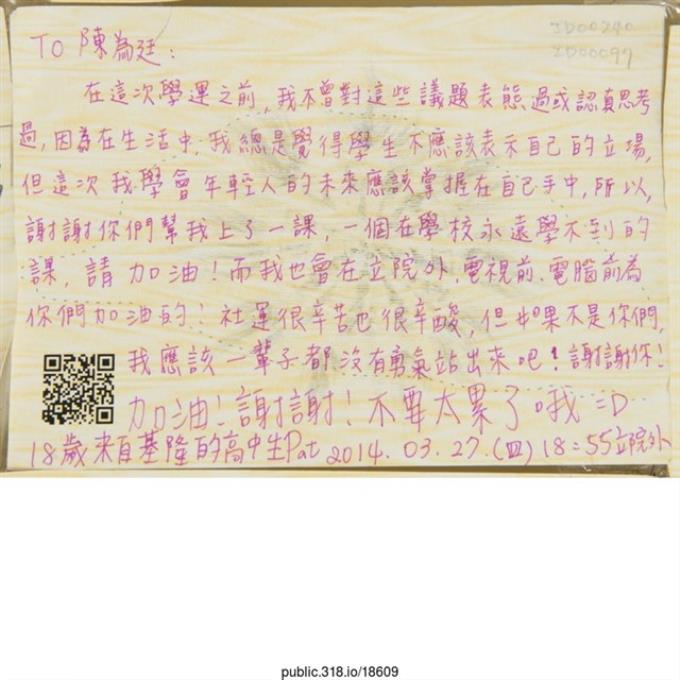 TO 陳為廷：
ID00240
ID00097
在這次學運之前,我不曾對這些議題表態過或認真思考
過,因為在生活中,我總是覺得學生不應該表示自己的立場,
但這次我學會年輕人的未來應該掌握在自己手中,所以,
謝謝你們幫我上了一課,一個在學校永遠學不到的
課,請加油!而我也會在立院外,電視前、電腦前為
你們加油的!社運很辛苦也很辛酸,但如果不是你們,
我應該一輩子都沒有勇氣站出來吧!謝謝你!
加油!謝謝!不要太累了哦=D
18歲來自基隆的高中生Pat 2014.03.27.(四)18:55立院外
public.318.io/18609